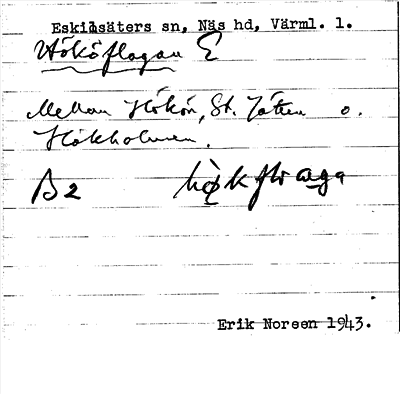 Eskilsäters sn, Näs hd, Värml. l.
Hököflagan E
Mellan Hökön, St. Jätten o.
Hökholmen.
B2
Erik Noreen 1943.